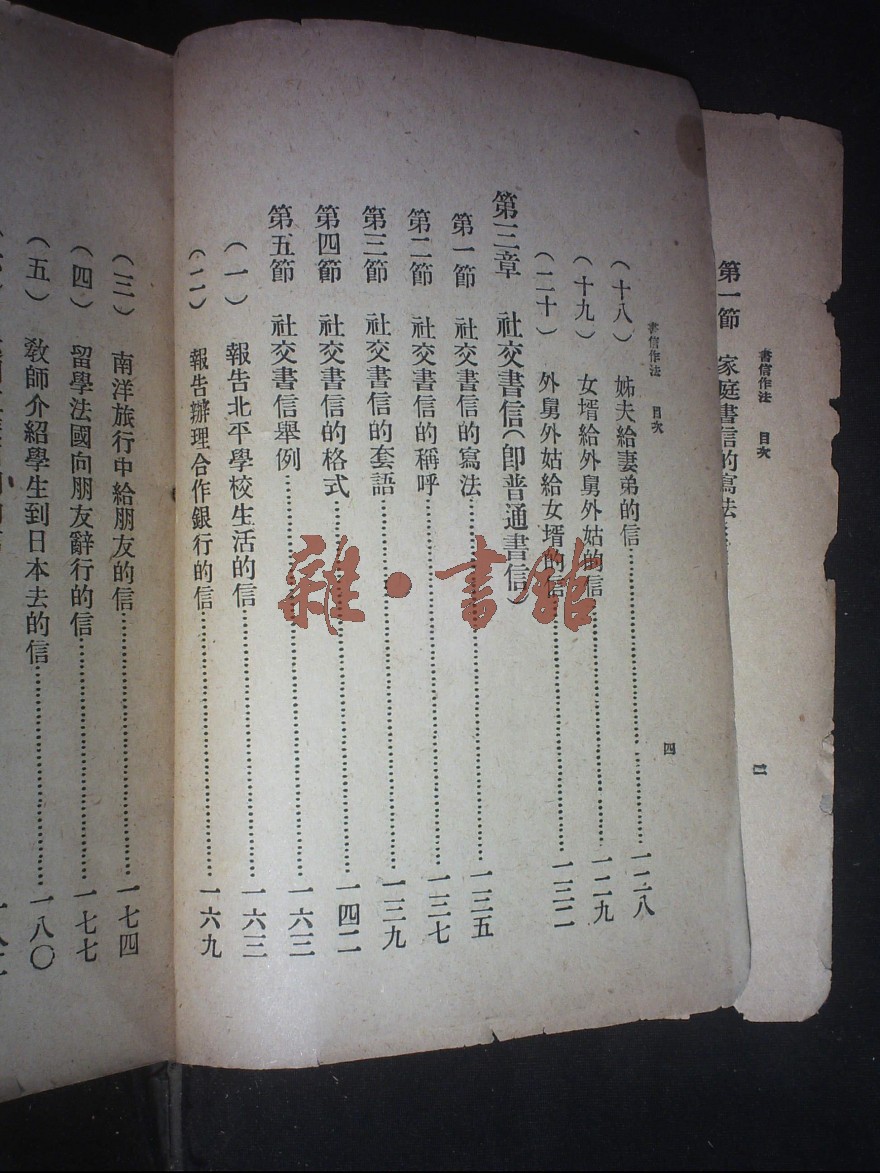 書信作法 目次
三
第一節 家庭書信的寫法
書信作法 目次
四
(十八) 姊夫給妻弟的信 一二八
(十九) 女壻給外舅外姑的信 一二九
(二十) 外舅外姑給女壻的信 一三二
第三章 社交書信(卽普通書信)
第一節 社交書信的寫法 一三五
第二節 社交書信的稱呼 一三七
第三節 社交書信的套語 一三九
第四節 社交書信的格式 一四二
第五節 社交書信舉例 一六三
(一) 報告北平學校生活的信 一六三
(二) 報告辦理合作銀行的信 一六九
(三) 南洋旅行中給朋友的信 一七四
(四) 留學法國向朋友辭行的信 一七七
(五) 敎師介紹學生到日本去的信 一八〇
雜·書館